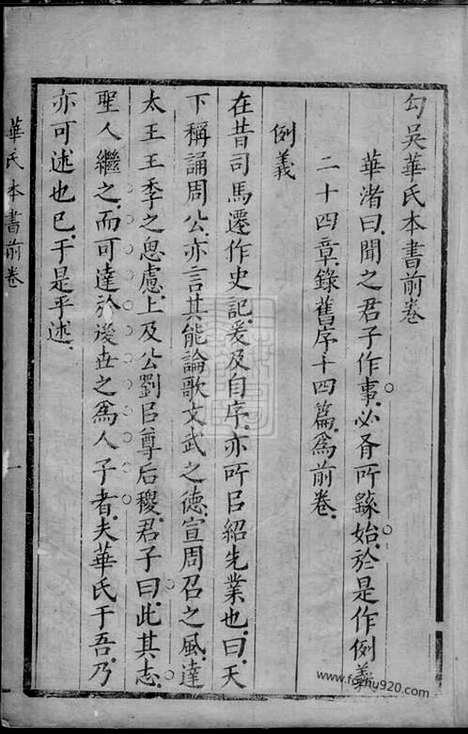 勾吳華氏本書前卷
華渚曰聞之君子作事必有所繇始於是作例義
二十四章錄舊序十四篇為前卷
例義
在昔司馬遷作史記爰及自序亦所㠯紹先業也曰天
下稱誦周公亦言其能論歌文武之德宣周召之風達
太王王季之思慮上及公劉㠯尊后稷君子曰此其志
聖人繼之而可達於後世之為人子者夫華氏于吾乃
亦可述也已于是乎述
華氏本書前卷
一
www.foshu920.com